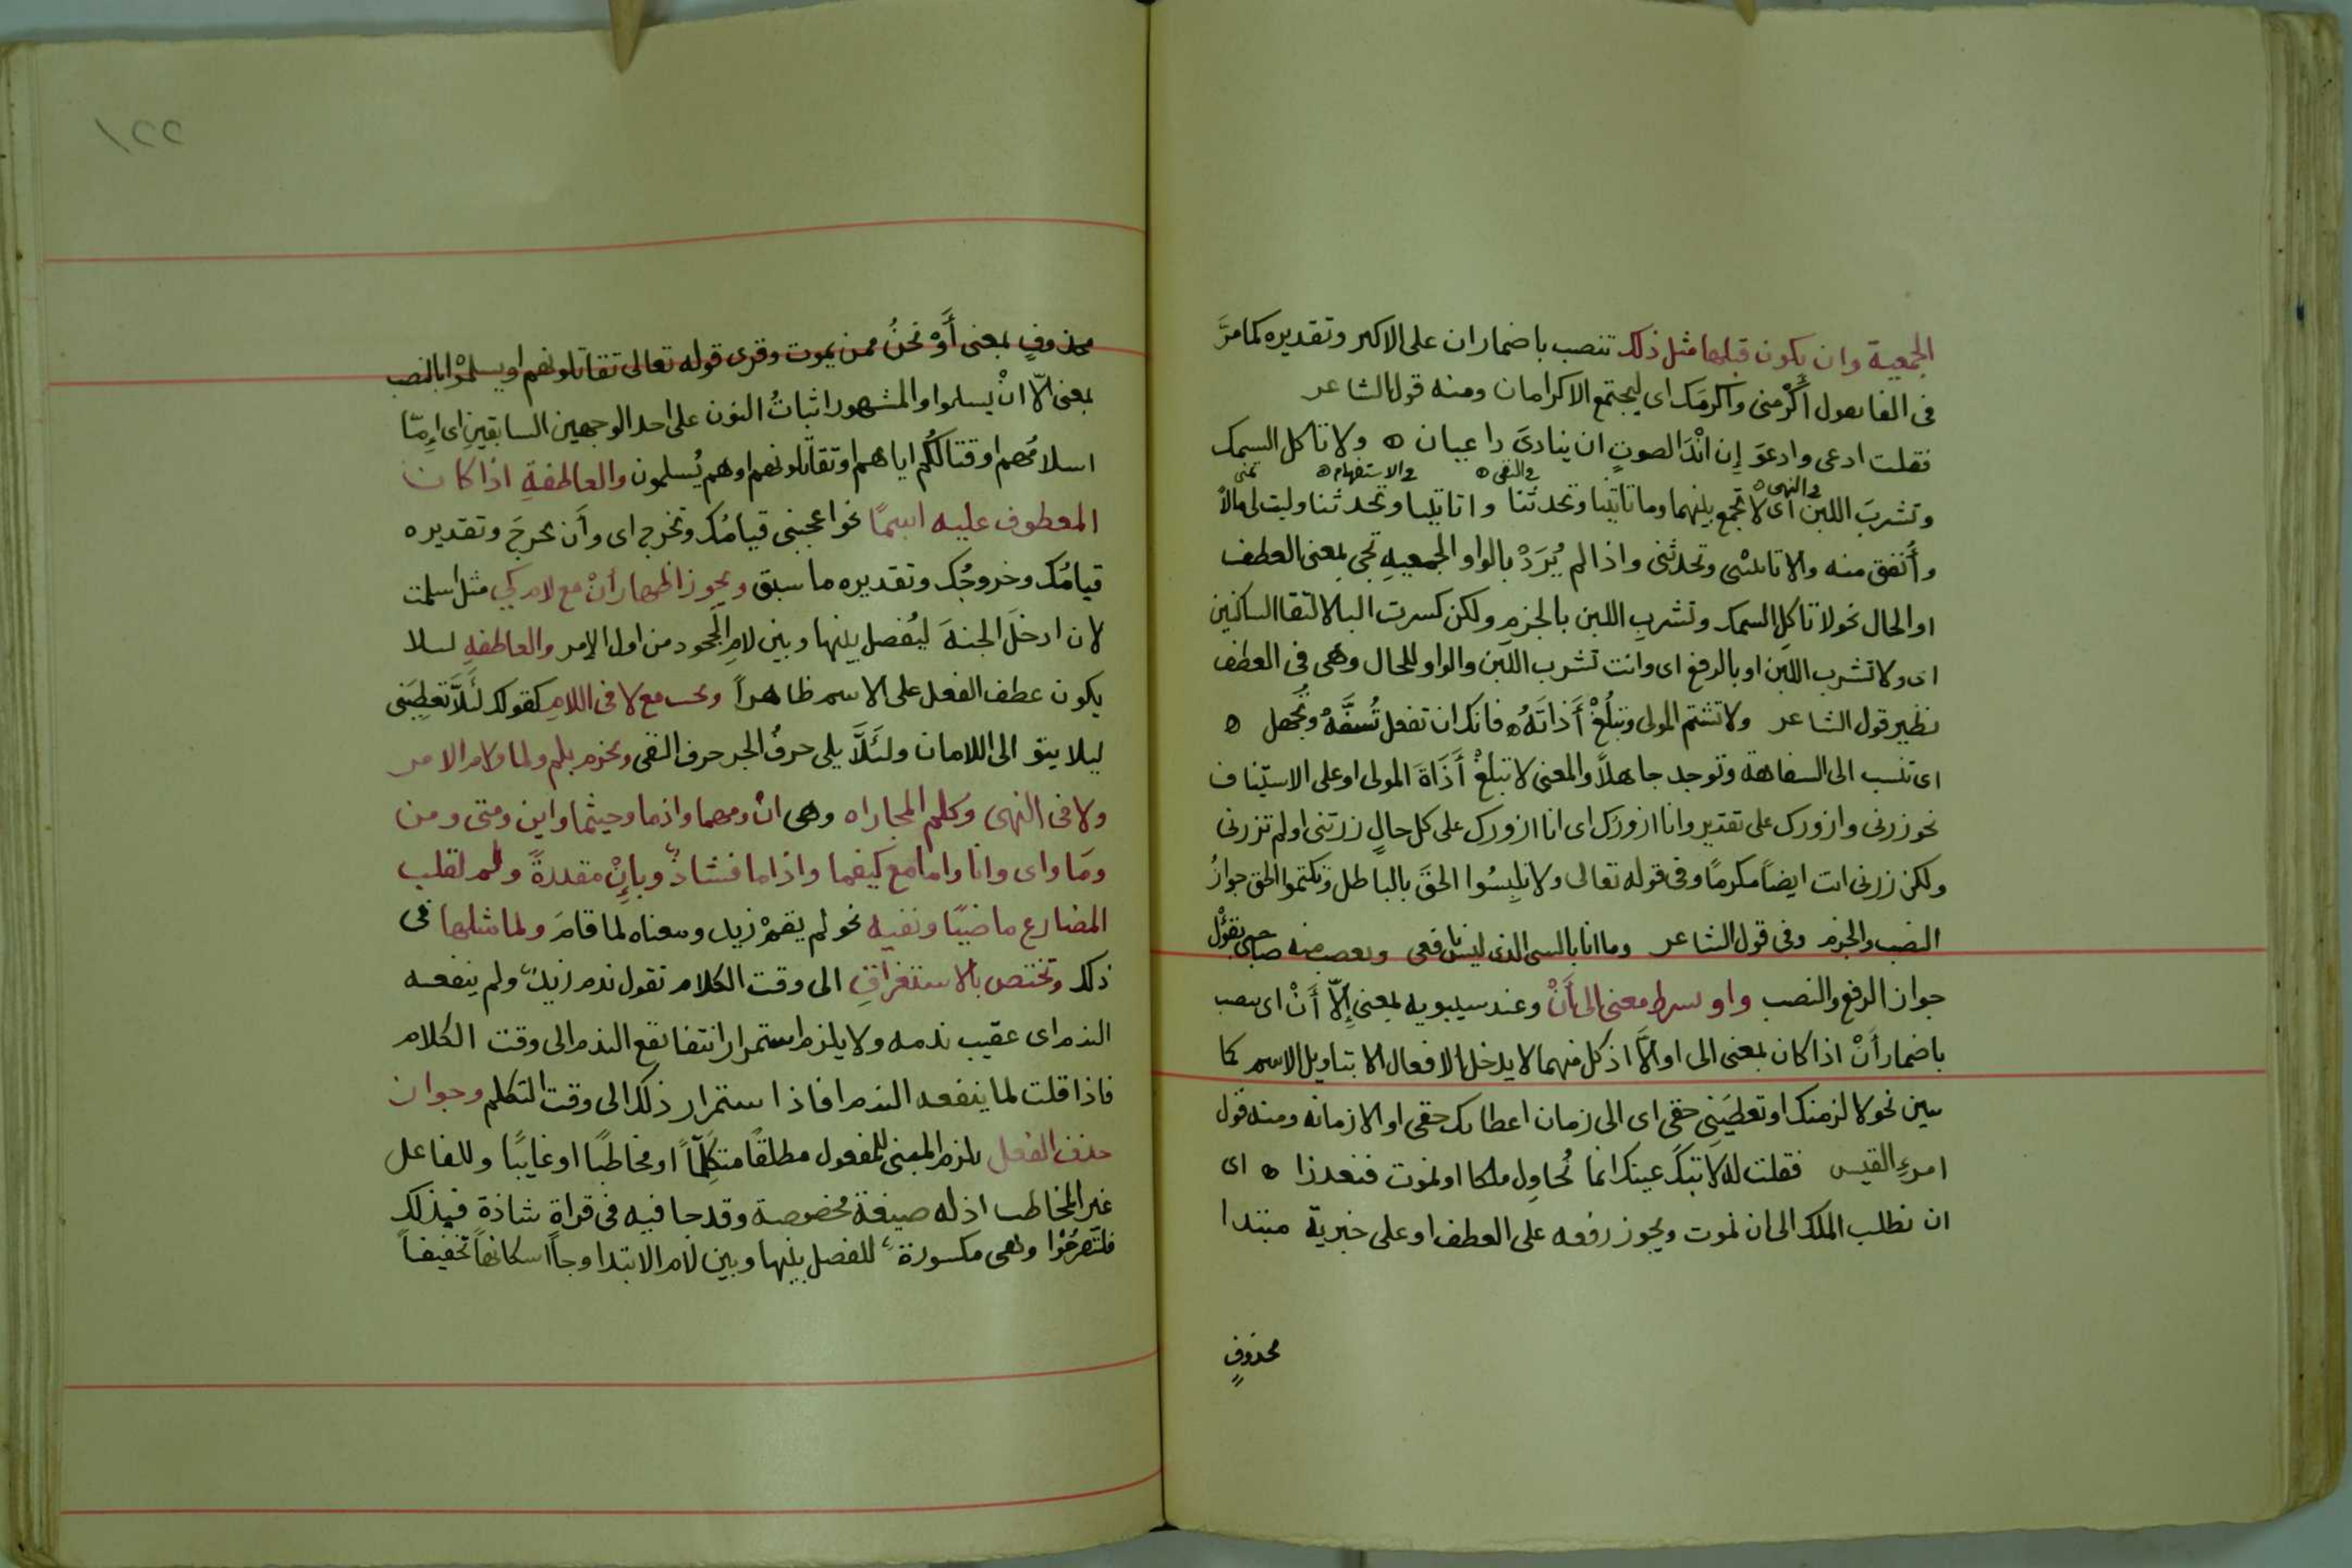 الجمعية وان يكون قبلها مثل ذلك تنصب باضمار ان على الاكبر وتقديره كما مرَّ
فى الفا نعول أَكْرِمنى واكرمَك اى ليجتمع الاكرامان ومنه قول الشاعر
فقلت ادعى وادعوَ إن انْدَا لصوتٍ ان ينادىَ داعيان ه ولا تاكل السمك
فى النهى ه فى النفى ه فى الاستفهام ه تمنى
وتشربَ اللبن اى لا تجمع بينهما وما تاتينا وتحدثنا واتاتينا وتحدثنا وليت لى مالاً
وأُنفق منه والا تاتينى وتحدثنى واذا لم يُرَدْ بالواو الجمعيةِ تجى بمعنى العطف
او الحال نحو لا تاكلِ السمك وتشربِ اللبن بالجزمِ ولكن كسرت البا لالتقا الساكنين
اى ولا تشرب اللبن او بالرفع اى وانت تشرب اللبن والواو للحال وهى فى العطف
نظير قول الشاعر ولا تشتم المولى وتبلُغْ أَذاتَهُ ه فانك ان تفعل تُسفَّهْ وتجهل ه
اى تنسب الى السفاهة وتوجد جاهلاً والمعنى لا تبلغْ أَذَاةَ المولى او على الاستيناف
نحو زرنى وازورك على تقدير وانا ازورُك اى انا ازورك على كل حالٍ زرتنى او لم تزرنى
ولكن زرنى انت ايضاً مكرمًا وفى قوله تعالى ولا تلبِسُوا الحقَ بالباطل وتكتموا الحق جوازُ
النصب والجزم وفى قول الشاعر وما انا بالشى الذى ليس نافعى ويغضب منه صاحبى بقؤل
جواز الرفع والنصب واو بشرط معنى الى أَنْ وعند سيبويه بمعنى إلاّ أَنْ اى ينصب
باضمار أَنْ اذا كان بمعنى الى او الاَّ اذ كل منهما لا يدخل الافعال الا بتاويل الاسم كما
بين نحو لالزمنك او تعطيَنى حقى اى الى زمان اعطائك حقى او الا زمانه ومنه قول
امرءِ القيس فقلت له لا تبكَ عينك انما نُحاوِل ملكا او نموت فنعذرا ه اى
ان نطلب الملك الى ان نموت ويجوز رفعه على العطف او على خبرية مبتدا
محذوفٍ
١٢٢
محذوفٍ بمعنى أَوْ نحنُ ممن يموت وقرى قوله تعالى تقاتلونهم او يسلمْوا بالنصب
بمعنى الاّ انْ يسلموا والمشهور اثباتُ النون على احد الوجهين السابقينِ اى اِمّا
اسلامُهم او قتالكُم اياهم او تقاتلونهم او هم يُسلمون والعاطفةِ اذا كان
المعطوف عليه اسمًا نحو اعجبنى قيامُك وتخرجَ اى وأَن تخرجَ وتقديره
قيامُك وخروجُك وتقديره ما سبق ويجوز اظهار أَنْ مع لام كى مثل اسلمت
لان ادخلَ الجنةَ ليُفصل بينها وبين لامِ الجحود من اول الامر والعاطفةِ ليلا
يكون عطف الفعل على الاسم ظاهراً ويجب مع لا فى اللامِ كقولك لئَلاَّ تعطِيَنى
ليلا يتوالى اللامان ولئَلاَّ يلى حرفُ الجر حرف النفى وتجزم بلم ولما ولام الامر
ولا فى النهى وكلم المجازاه وهى انْ ومهما واذما وحيثما واين ومتى ومن
ومَا واى وانا واما مع كيفما واذاما فشاذٌ وبإِنْ مقدرةً ولم لقلب
المضارع ماضيًا ونفيه نحو لم يقمْ زيد ومعناه لما قامَ ولما مثلها فى
ذلك وتختص بالاستغراقِ الى وقت الكلام تقول ندم زيدٌ ولم ينفعه
الندم اى عقيب ندمه ولا يلزم استمرار انتفا نفع الندم الى وقت الكلام
فاذا قلت لما ينفعه الندم افاد استمرار ذلك الى وقت التكلم وجواز
حذف الفعل يلزم المبنى للمفعول مطلقًا متكَلِّماً او مخاطبًا او غايبًا وللفاعل
غير المخاطب اذ له صيغة مخصوصة وقد جا فيه فى قراةٍ شاذةٍ فبذلك
فلتفرَحُوا وهى مكسورةٌ للفصل بينها وبين لام الابتدا وجاً اسكانها تخفيفاً